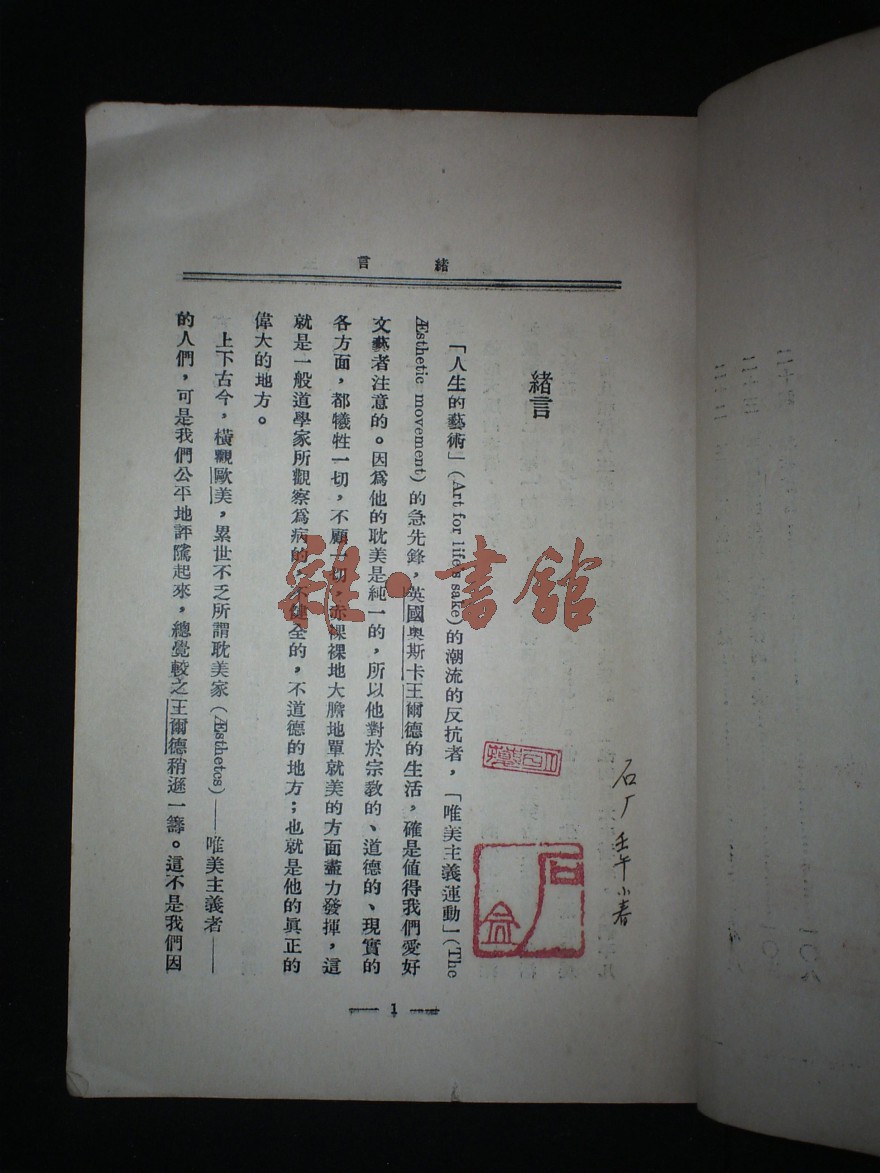 緒言
緒言
「人生的藝術」(Art for life's sake)的潮流的反抗者，「唯美主義運動」(The
Æsthetic movement)的急先鋒，英國奧斯卡王爾德的生活，確是值得我們愛好
文藝者注意的。因爲他的耽美是純一的，所以他對於宗教的、道德的、現實的
各方面，都犧牲一切，不顧一切，赤裸裸地大膽地單就美的方面盡力發揮，這
就是一般道學家所觀察爲病的，不健全的，不道德的地方；也就是他的眞正的
偉大的地方。
上下古今，橫觀歐美，累世不乏所謂耽美家(Æsthetes)——唯美主義者——
的人們，可是我們公平地評隲起來，總覺較之王爾德稍遜一籌。這不是我們因
— 1 —
石厂 壬午小春
雜·書館
二十三
二十二